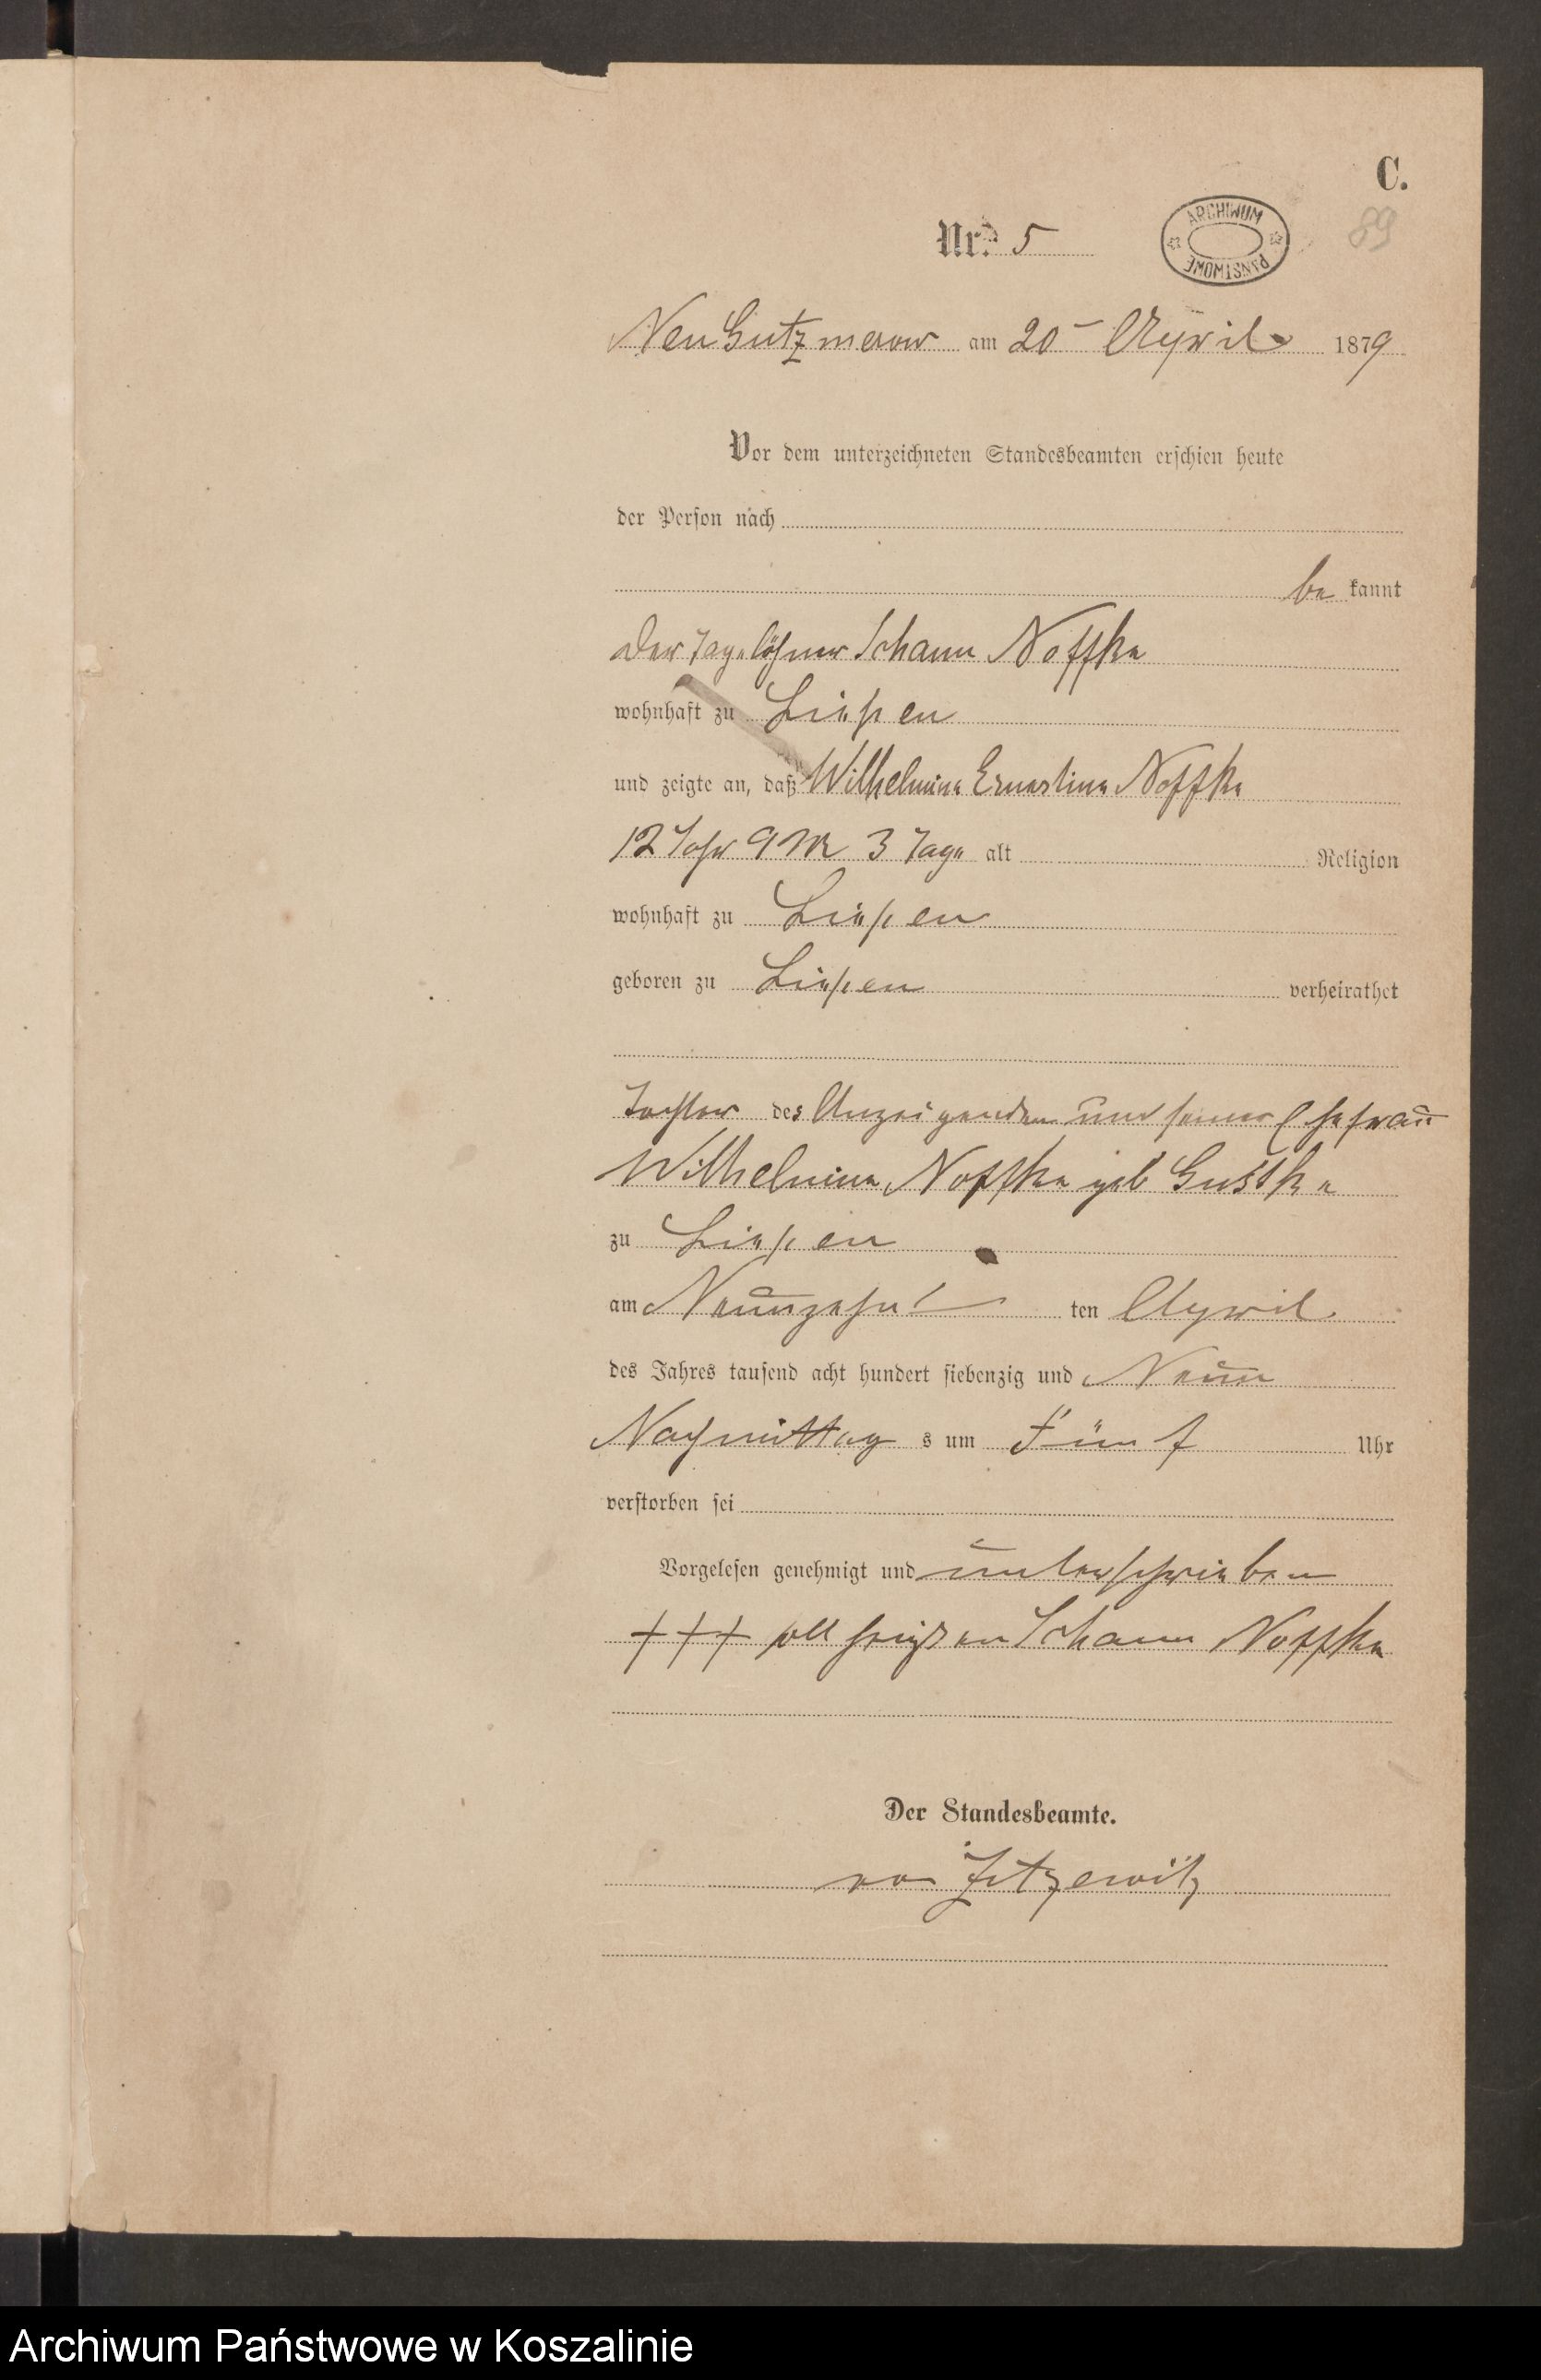 C.
Nr. 5
ARCHIWUM PAŃSTWOWE
89
Neu Gutzmerow am 20 April 1879
Vor dem unterzeichneten Standesbeamten erschien heute
der Person nach
be kannt
der Tagelöhner Johann Noffke
wohnhaft zu Liepen
und zeigte an, daß Wilhelmine Ernestine Noffke
12 Jahr 9 M 3 Tage alt Religion
wohnhaft zu Liepen
geboren zu Liepen verheirathet
Tochter des Anzeigenden und seiner Ehefrau
Wilhelmine Noffke geb Gustke
zu Liepen
am Neunzehn ten April
des Jahres tausend acht hundert siebenzig und Neun
Nachmittag s um Fünf Uhr
verstorben sei
Vorgelesen genehmigt und unterschrieben
+++ soll heißen Johann Noffke
Der Standesbeamte.
von Zitzewitz
Archiwum Państwowe w Koszalinie